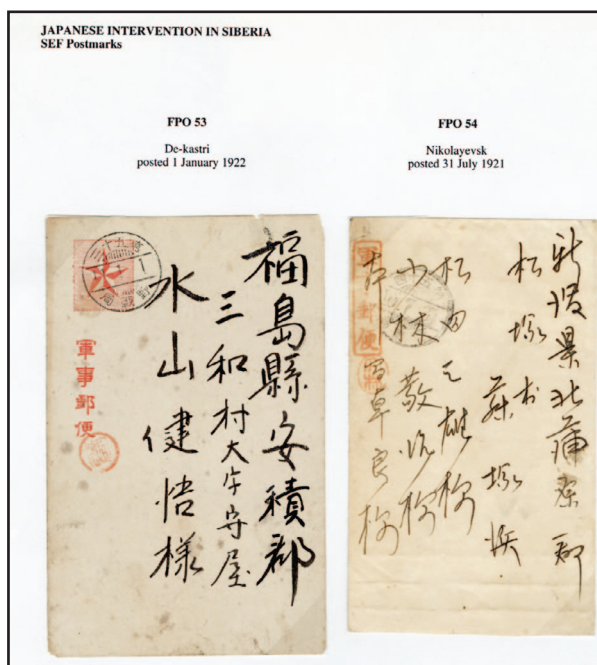 JAPANESE INTERVENTION IN SIBERIA
SEF Postmarks
FPO 53
De-kastri
posted 1 January 1922
FPO 54
Nikolayevsk
posted 31 July 1921
福島縣安積郡
三和村大字守屋
水山健悟様
軍事郵便
新潟県北蒲原郡
松塚村 藤塚浜
小林敬次様
軍事郵便